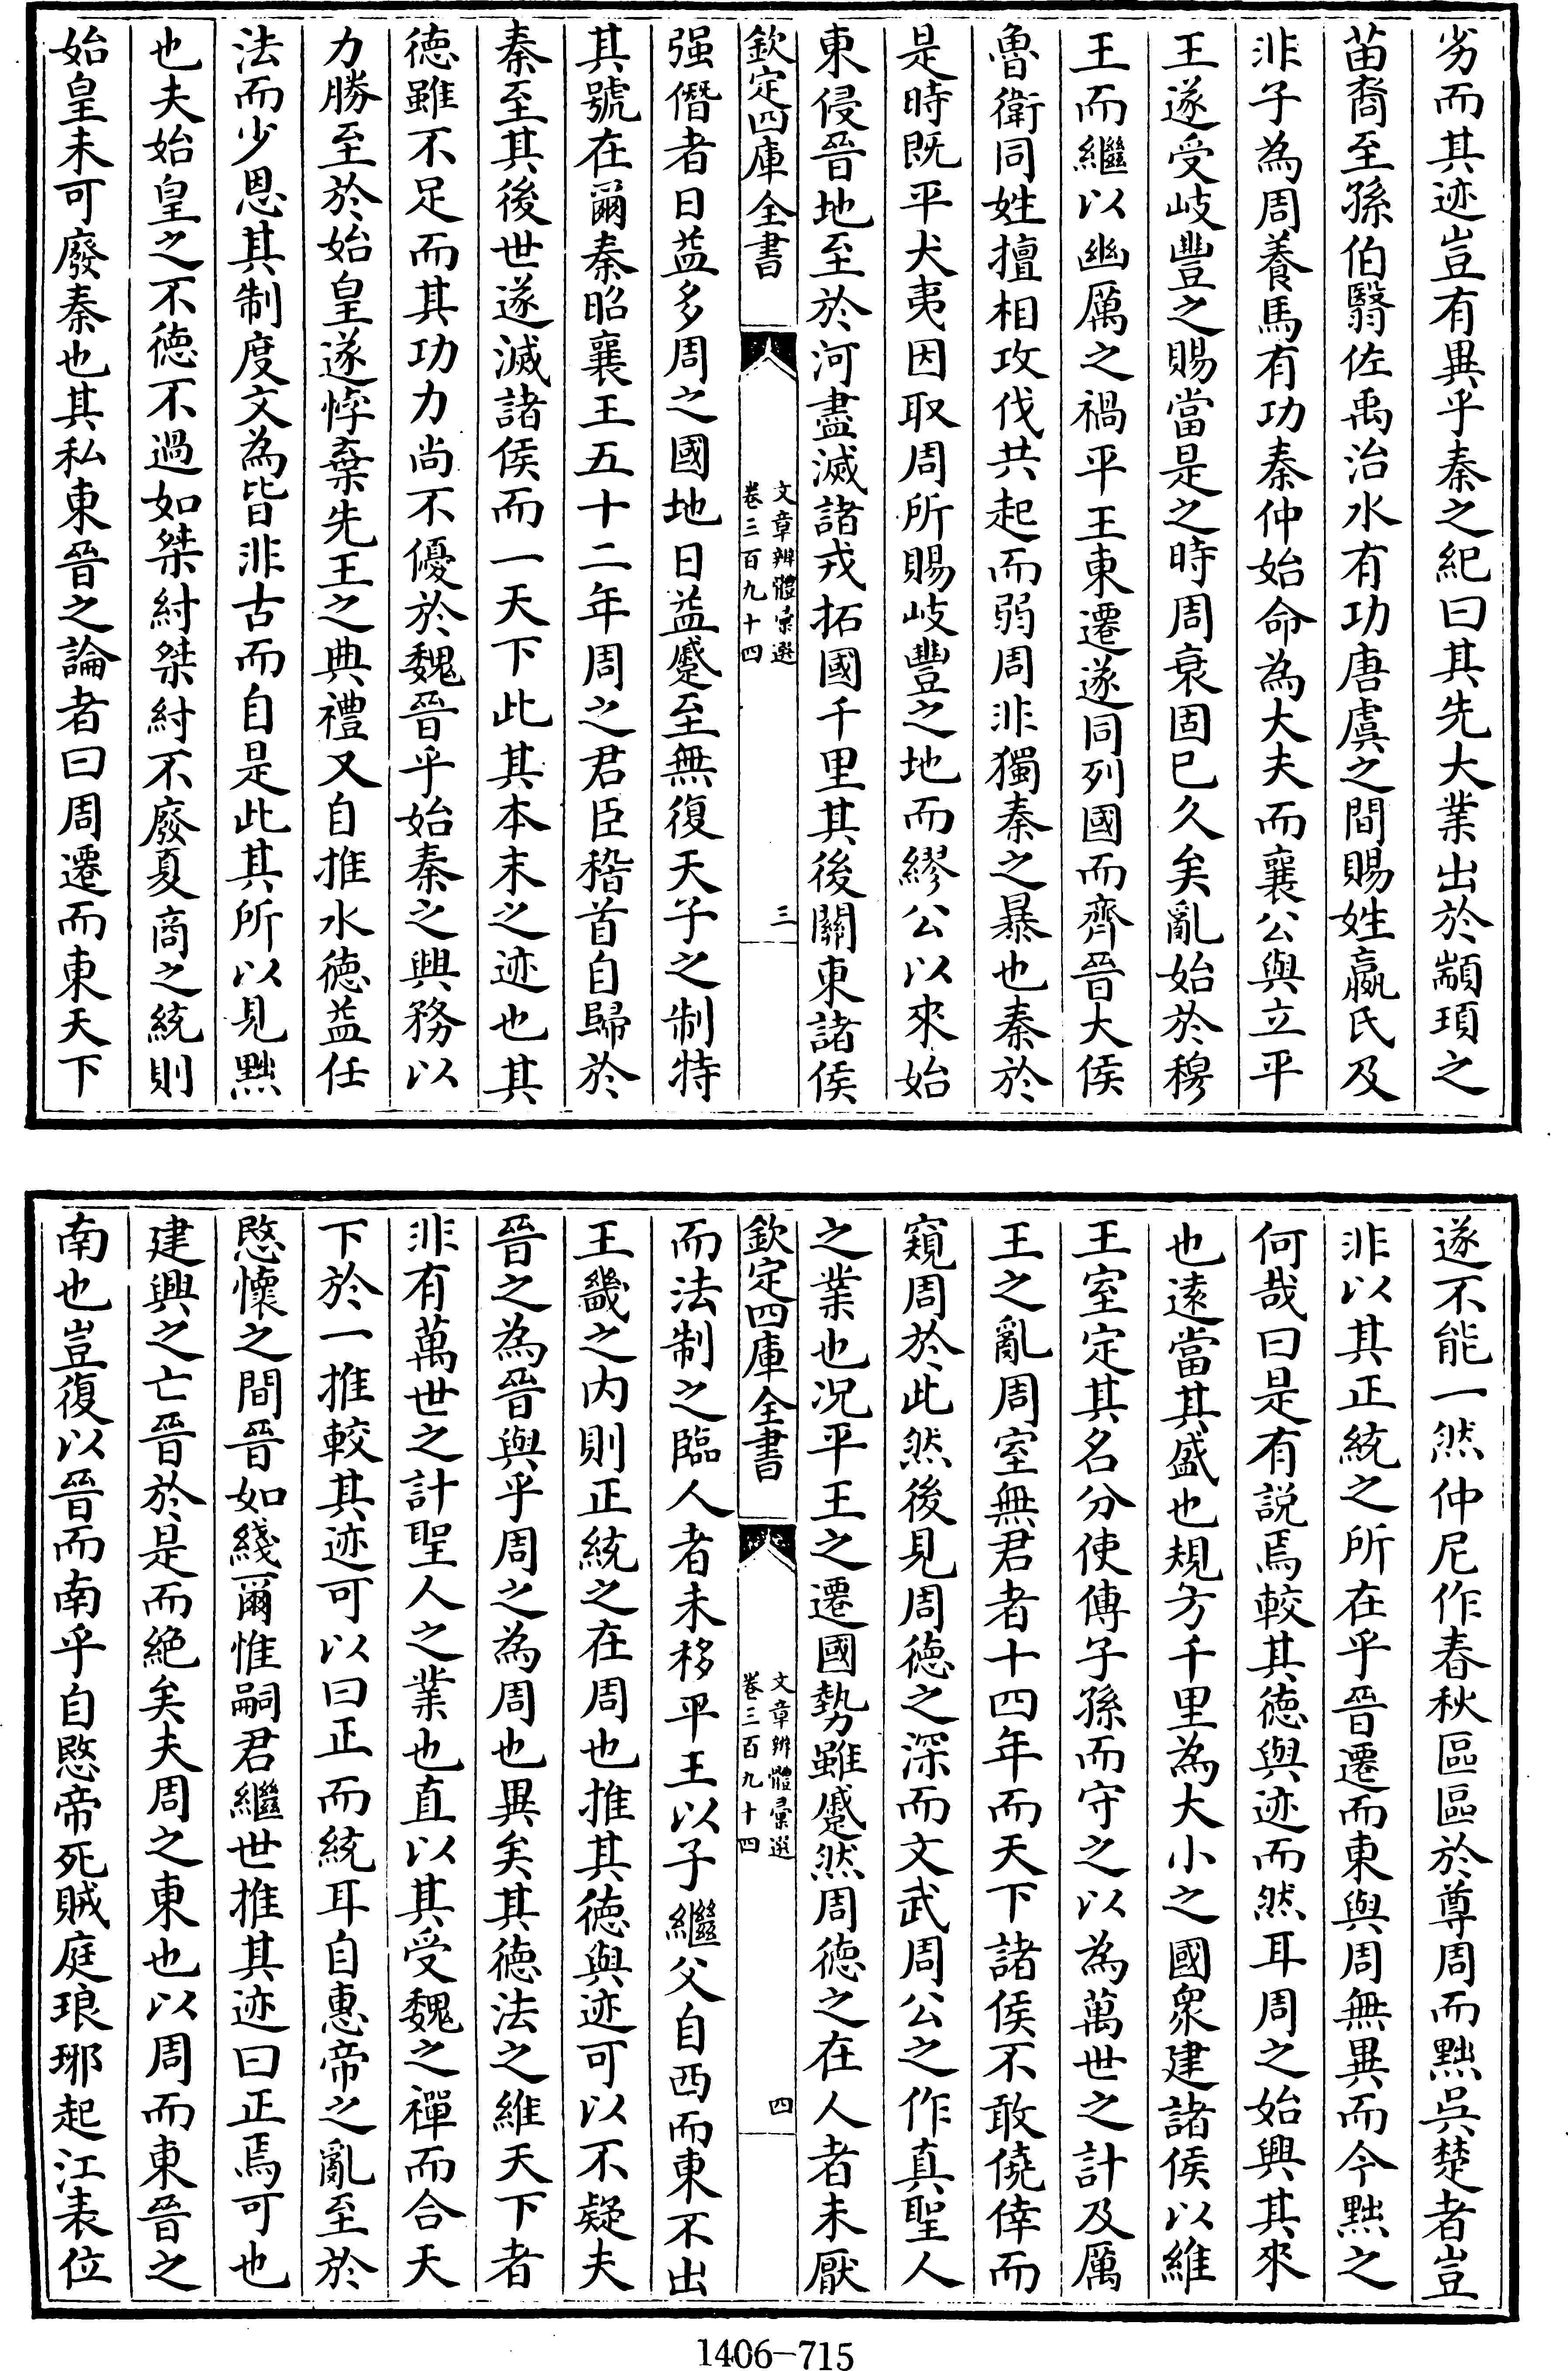 劣而其迹豈有異乎秦之紀曰其先大業出於顓頊之
苗裔至孫伯翳佐禹治水有功唐虞之間賜姓嬴氏及
非子為周養馬有功秦仲始命為大夫而襄公與立平
王遂受岐豐之賜當是之時周衰固已久矣亂始於穆
王而繼以幽厲之禍平王東遷遂同列國而齊晉大侯
魯衛同姓擅相攻伐共起而弱周非獨秦之暴也秦於
是時既平犬夷因取周所賜岐豐之地而繆公以來始
東侵晉地至於河盡滅諸戎拓國千里其後關東諸侯
欽定四庫全書
文章辨體彙選
卷三百九十四
三
强僭者日益多周之國地日益蹙至無復天子之制特
其號在爾秦昭襄王五十二年周之君臣稽首自歸於
秦至其後世遂滅諸侯而一天下此其本末之迹也其
德雖不足而其功力尚不優於魏晉乎始秦之興務以
力勝至於始皇遂悖棄先王之典禮又自推水德益任
法而少恩其制度文為皆非古而自是此其所以見黜
也夫始皇之不德不過如桀紂桀紂不廢夏商之統則
始皇未可廢秦也其私東晉之論者曰周遷而東天下
遂不能一然仲尼作春秋區區於尊周而黜吳楚者豈
非以其正統之所在乎晉遷而東與周無異而今黜之
何哉曰是有説焉較其德與迹而然耳周之始興其來
也逺當其盛也規方千里為大小之國衆建諸侯以維
王室定其名分使傳子孫而守之以為萬世之計及厲
王之亂周室無君者十四年而天下諸侯不敢僥倖而
窺周於此然後見周德之深而文武周公之作真聖人
之業也况平王之遷國勢雖蹙然周德之在人者未厭
欽定四庫全書
文章辨體彙選
卷三百九十四
四
而法制之臨人者未移平王以子繼父自西而東不出
王畿之内則正統之在周也推其德與迹可以不疑夫
晉之為晉與乎周之為周也異矣其德法之維天下者
非有萬世之計聖人之業也直以其受魏之禪而合天
下於一推較其迹可以曰正而統耳自惠帝之亂至於
愍懷之間晉如綫爾惟嗣君繼世推其迹曰正焉可也
建興之亡晉於是而絶矣夫周之東也以周而東晉之
南也豈復以晉而南乎自愍帝死賊庭琅琊起江表位
1406-715